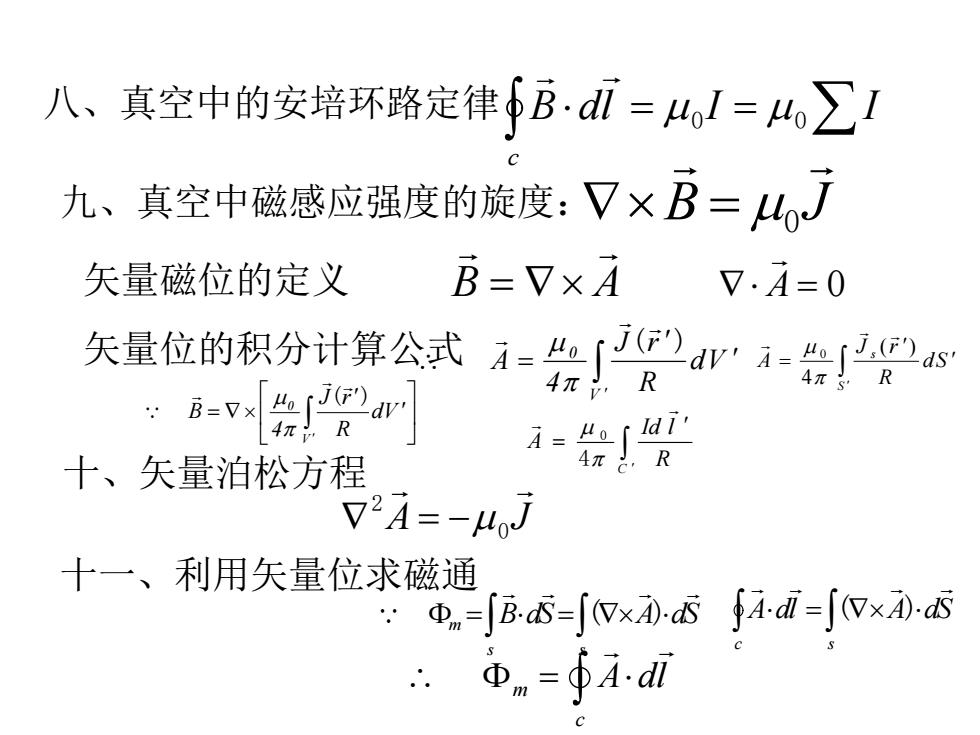 八、真空中的安培环路定律 ∮_c B⃗·dl⃗ = μ₀I = μ₀∑I
九、真空中磁感应强度的旋度：∇×B⃗ = μ₀J⃗
矢量磁位的定义 B⃗ = ∇×A⃗ ∇·A⃗ = 0
矢量位的积分计算公式 ∴ A⃗ = μ₀/4π ∫_V′ J⃗(r⃗′)/R dV′ A⃗ = μ₀/4π ∫_S′ J⃗_s(r⃗′)/R dS′
∵ B⃗ = ∇×[μ₀/4π ∫_V′ J⃗(r⃗′)/R dV′] A⃗ = μ₀/4π ∫_C′ Idl⃗′/R
十、矢量泊松方程
∇²A⃗ = −μ₀J⃗
十一、利用矢量位求磁通
∵ Φ_m = ∫_s B⃗·dS⃗ = ∫_s (∇×A⃗)·dS⃗ ∮_c A⃗·dl⃗ = ∫_s (∇×A⃗)·dS⃗
∴ Φ_m = ∮_c A⃗·dl⃗